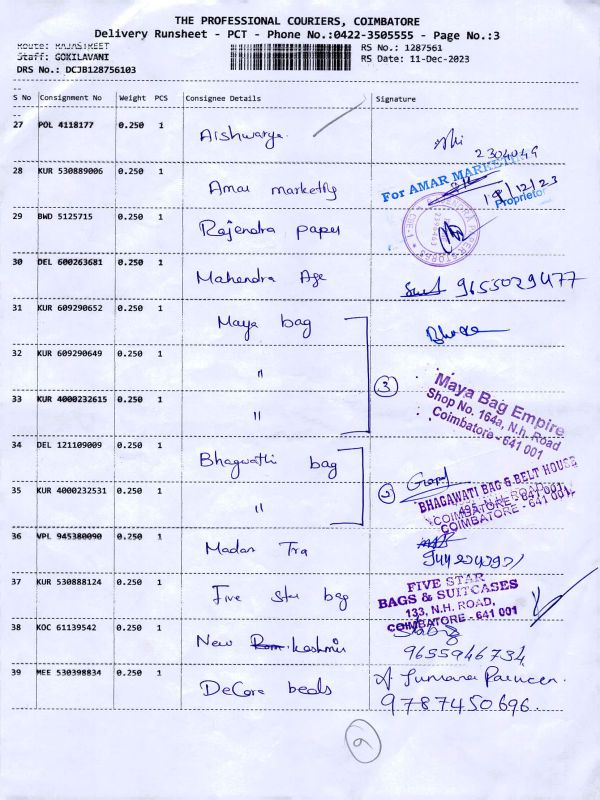 THE PROFESSIONAL COURIERS, COIMBATORE
Delivery Runsheet - PCT - Phone No.:0422-3505555 - Page No.:3
Route: RAJASTREET
RS No.: 1287561
Staff: GOKILAVANI
RS Date: 11-Dec-2023
DRS No.: DCJB128756103
S No Consignment No Weight PCS Consignee Details Signature
27 POL 4118177 0.250 1 Aishwarya
2304049
28 KUR 530889006 0.250 1 Amar marketing
For AMAR MARKETING
19/12/23
Proprietor
29 BWD 5125715 0.250 1 Rajendra paper
30 DEL 600263681 0.250 1 Mahendra Age 9655029477
31 KUR 609290652 0.250 1 Maya bag
32 KUR 609290649 0.250 1 "
3
33 KUR 4000232615 0.250 1 "
Maya Bag Empire
Shop No. 164a, N.h. Road
Coimbatore - 641 001
34 DEL 121109009 0.250 1 Bhagwathi bag
2 Gopal
35 KUR 4000232531 0.250 1 "
BHAGAWATI BAG & BELT HOUSE
495, N.H. ROAD
COIMBATORE - 641 001
COIMBATORE - 641 001
36 VPL 945380090 0.250 1 Madan Tra
37 KUR 530888124 0.250 1 Five star bag
FIVE STAR
BAGS & SUITCASES
133, N.H. ROAD,
COIMBATORE - 641 001
38 KOC 61139542 0.250 1 New kashmir
9655946734
39 MEE 530398834 0.250 1 DeCora beads
9787450696.
9